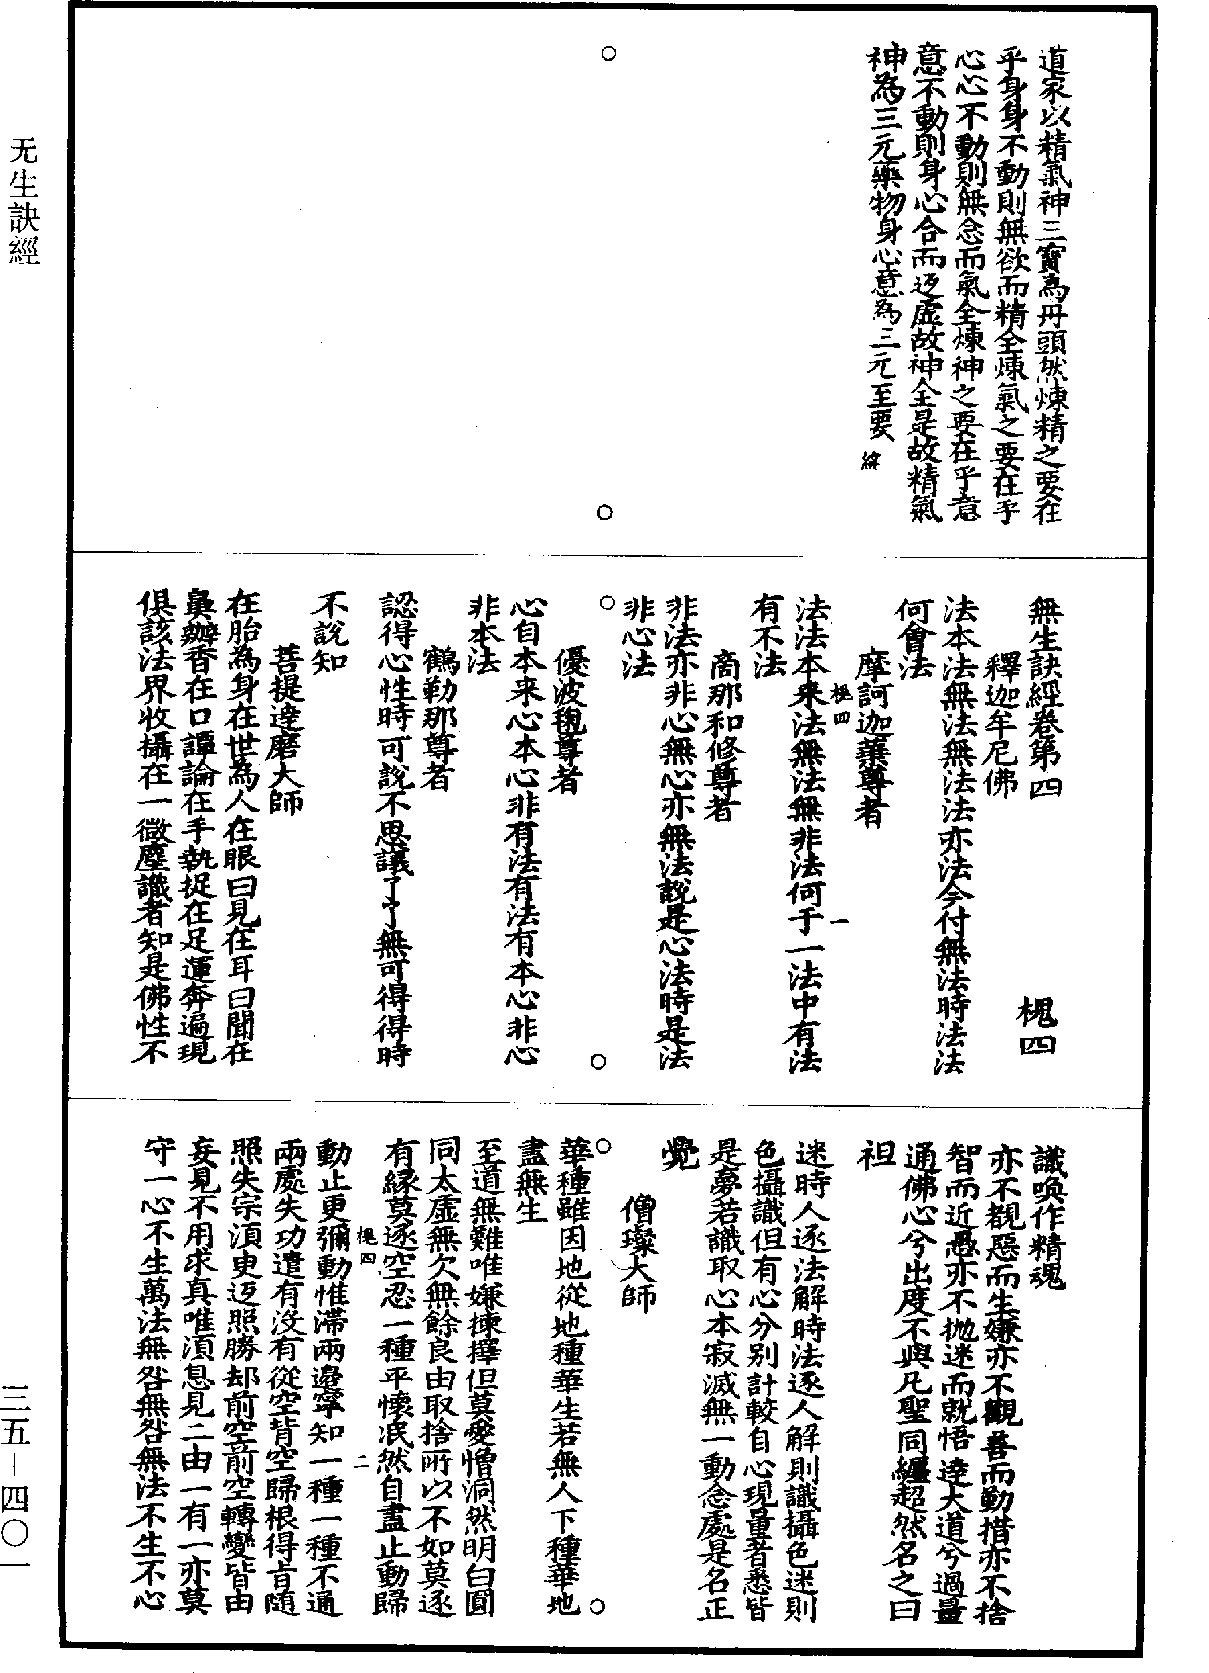 道家以精氣神三寳為丹頭然煉精之要在
乎身身不動則無欲而精全煉氣之要在乎
心心不動則無念而氣全煉神之要在乎意
意不動則身心合而返虛故神全是故精氣
神為三元藥物身心意為三元至要
無生訣經卷第四
槐四
釋迦牟尼佛
法本法無法無法法亦法今付無法時法法
何曾法
摩訶迦葉尊者
法法本来法無法無非法何于一法中有法
有不法
槐四
一
商那和修尊者
非法亦非心無心亦無法說是心法時是法
非心法
優波毱尊者
心自本来心本心非有法有法有本心非心
非本法
鶴勒那尊者
認得心性時可說不思議了了無可得得時
不說知
菩提達磨大師
在胎為身在世為人在眼曰見在耳曰聞在
鼻辦香在口譚論在手執捉在足運奔遍現
俱該法界收攝在一微塵識者知是佛性不
識喚作精魂
亦不覩惡而生嫌亦不觀善而勤措亦不捨
智而近愚亦不抛迷而就悟達大道兮過量
通佛心兮出度不與凡聖同纏超然名之曰
祖
迷時人逐法解時法逐人解則識攝色迷則
色攝識但有心分別計較自心現量者悉皆
是夢若識取心本寂滅無一動念處是名正
覺
僧璨大師
華種雖因地從地種華生若無人下種華地
盡無生
至道無難唯嫌揀擇但莫愛憎洞然明白圓
同太虛無欠無餘良由取捨所以不如莫逐
有緣莫逐空忍一種平懷泯然自盡止動歸
槐四
二
動止更彌動惟滯兩邊寧知一種一種不通
兩處失功遣有沒有從空背空歸根得旨隨
照失宗須更返照勝却前空前空轉變皆由
妄見不用求真唯須息見二由一有一亦莫
守一心不生萬法無咎無咎無法不生不心
无生訣經
三五－四〇一